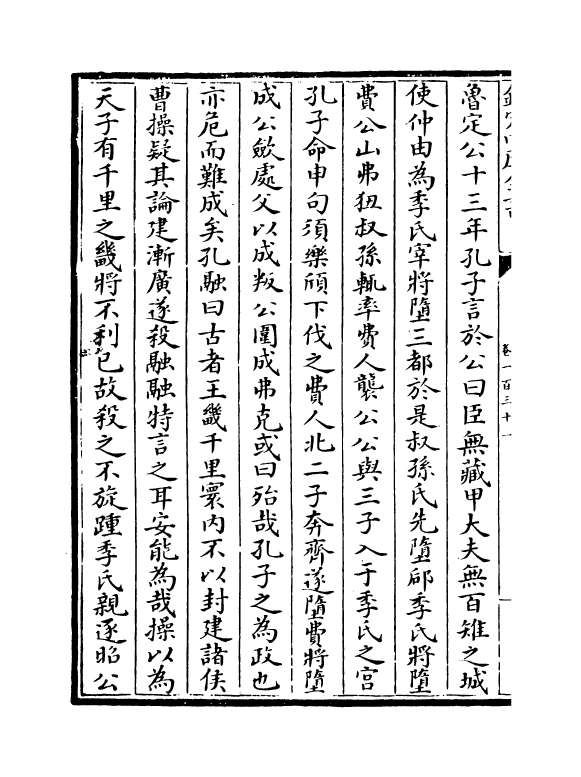 魯定公十三年孔子言於公曰臣無藏甲大夫無百雉之城
使仲由為季氏宰將墮三都於是叔孫氏先墮郈季氏將墮
費公山弗狃叔孫輒率費人襲公公與三子入于季氏之宮
孔子命申句須樂頎下伐之費人北二子奔齊遂墮費將墮
成公斂處父以成叛公圍成弗克或曰殆哉孔子之為政也
亦危而難成矣孔融曰古者王畿千里寰內不以封建諸侯
曹操疑其論建漸廣遂殺融融特言之耳安能為哉操以為
天子有千里之畿將不利已故殺之不旋踵季氏親逐昭公
卷一百三十一